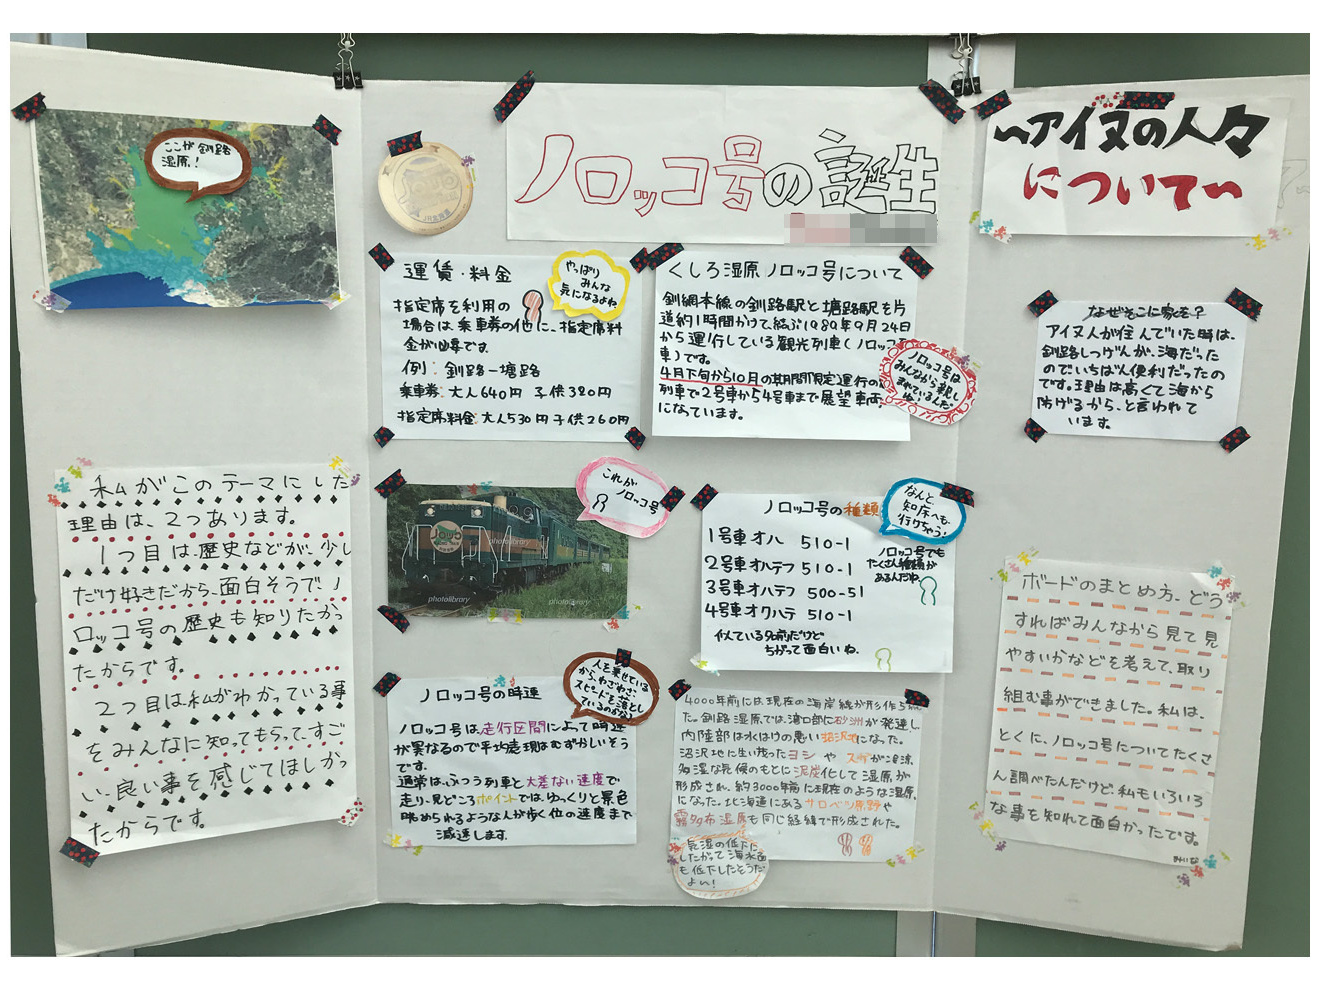 ここが釧路
湿原!
私がこのテーマにした
理由は、2つあります。
1つ目は、歴史などが、少し
だけ好きだから、面白そうで、ノ
ロッコ号の歴史も知りたかっ
たからです。
2つ目は私がわかっている事
をみんなに知ってもらって、すご
い、良い事を感じてほしかっ
たからです。
JR北海道
ノロッコ号の誕生
運賃・料金
やっぱり
みんな
気になるよね
指定席を利用の
場合は、乗車券の他に、指定席料
金が必要です。
例:釧路ー塘路
乗車券:大人640円 子供320円
指定席料金:大人530円 子供260円
くしろ湿原ノロッコ号について
釧網本線の釧路駅と塘路駅を片
道約1時間かけて結ぶ1989年9月24日
から運行している観光列車(ノロッコ列
車)です。
4月下旬から10月の期間限定運行の
列車で2号車から4号車まで展望車両
になっています。
ノロッコ号は
みんなから親し
まれているんだ
これが
ノロッコ号
photolibrary
photolibrary
photolibrary
ノロッコ号の種類
なんと
知床へも
行けちゃう!
1号車オハ 510-1
2号車オハテフ 510-1
3号車オハテフ 500-51
4号車オクハテ 510-1
ノロッコ号でも
たくさん種類が
あるんだね
似ている名前だけど
ちがって面白いね。
ノロッコ号の時速
人を乗せている
から、わざわざ
スピードを落とし
ているのかな
ノロッコ号は走行区間によって時速
が異なるので平均表現はむずかしいそう
です。
通常は、ふつう列車と大差ない速度で
走り、見どころポイントでは、ゆっくりと景色
眺められるような人が歩く位の速度まで
減速します。
4000年前には現在の海岸線が形作ら
た。釧路湿原では、湾口部に砂洲が発達し
内陸部は水はけの悪い沼沢地になった。
沼沢地に生い茂ったヨシやスゲが
多湿な気候のもとに泥炭化して湿原が
形成され、約3000年前に現在のような湿原
になった。北海道にあるサロベツ原野や
霧多布湿原も同じ経緯で形成された。
気温の低下に
したがって海水面
も低下したそうだ
よ!
〜アイヌの人々
について〜
なぜそこに家を?
アイヌ人が住んでいた時は、
釧路しつげんが、海だった
のでいちばん便利だったの
です。理由は高くて海から
防げるから、と言われて
います。
ボードのまとめ方、どう
すればみんなから見て見
やすいかなどを考えて、取り
組む事ができました。私は、
とくに、ノロッコ号についてたくさ
ん調べたんだけど、私もいろいろ
な事を知れて面白かったです。